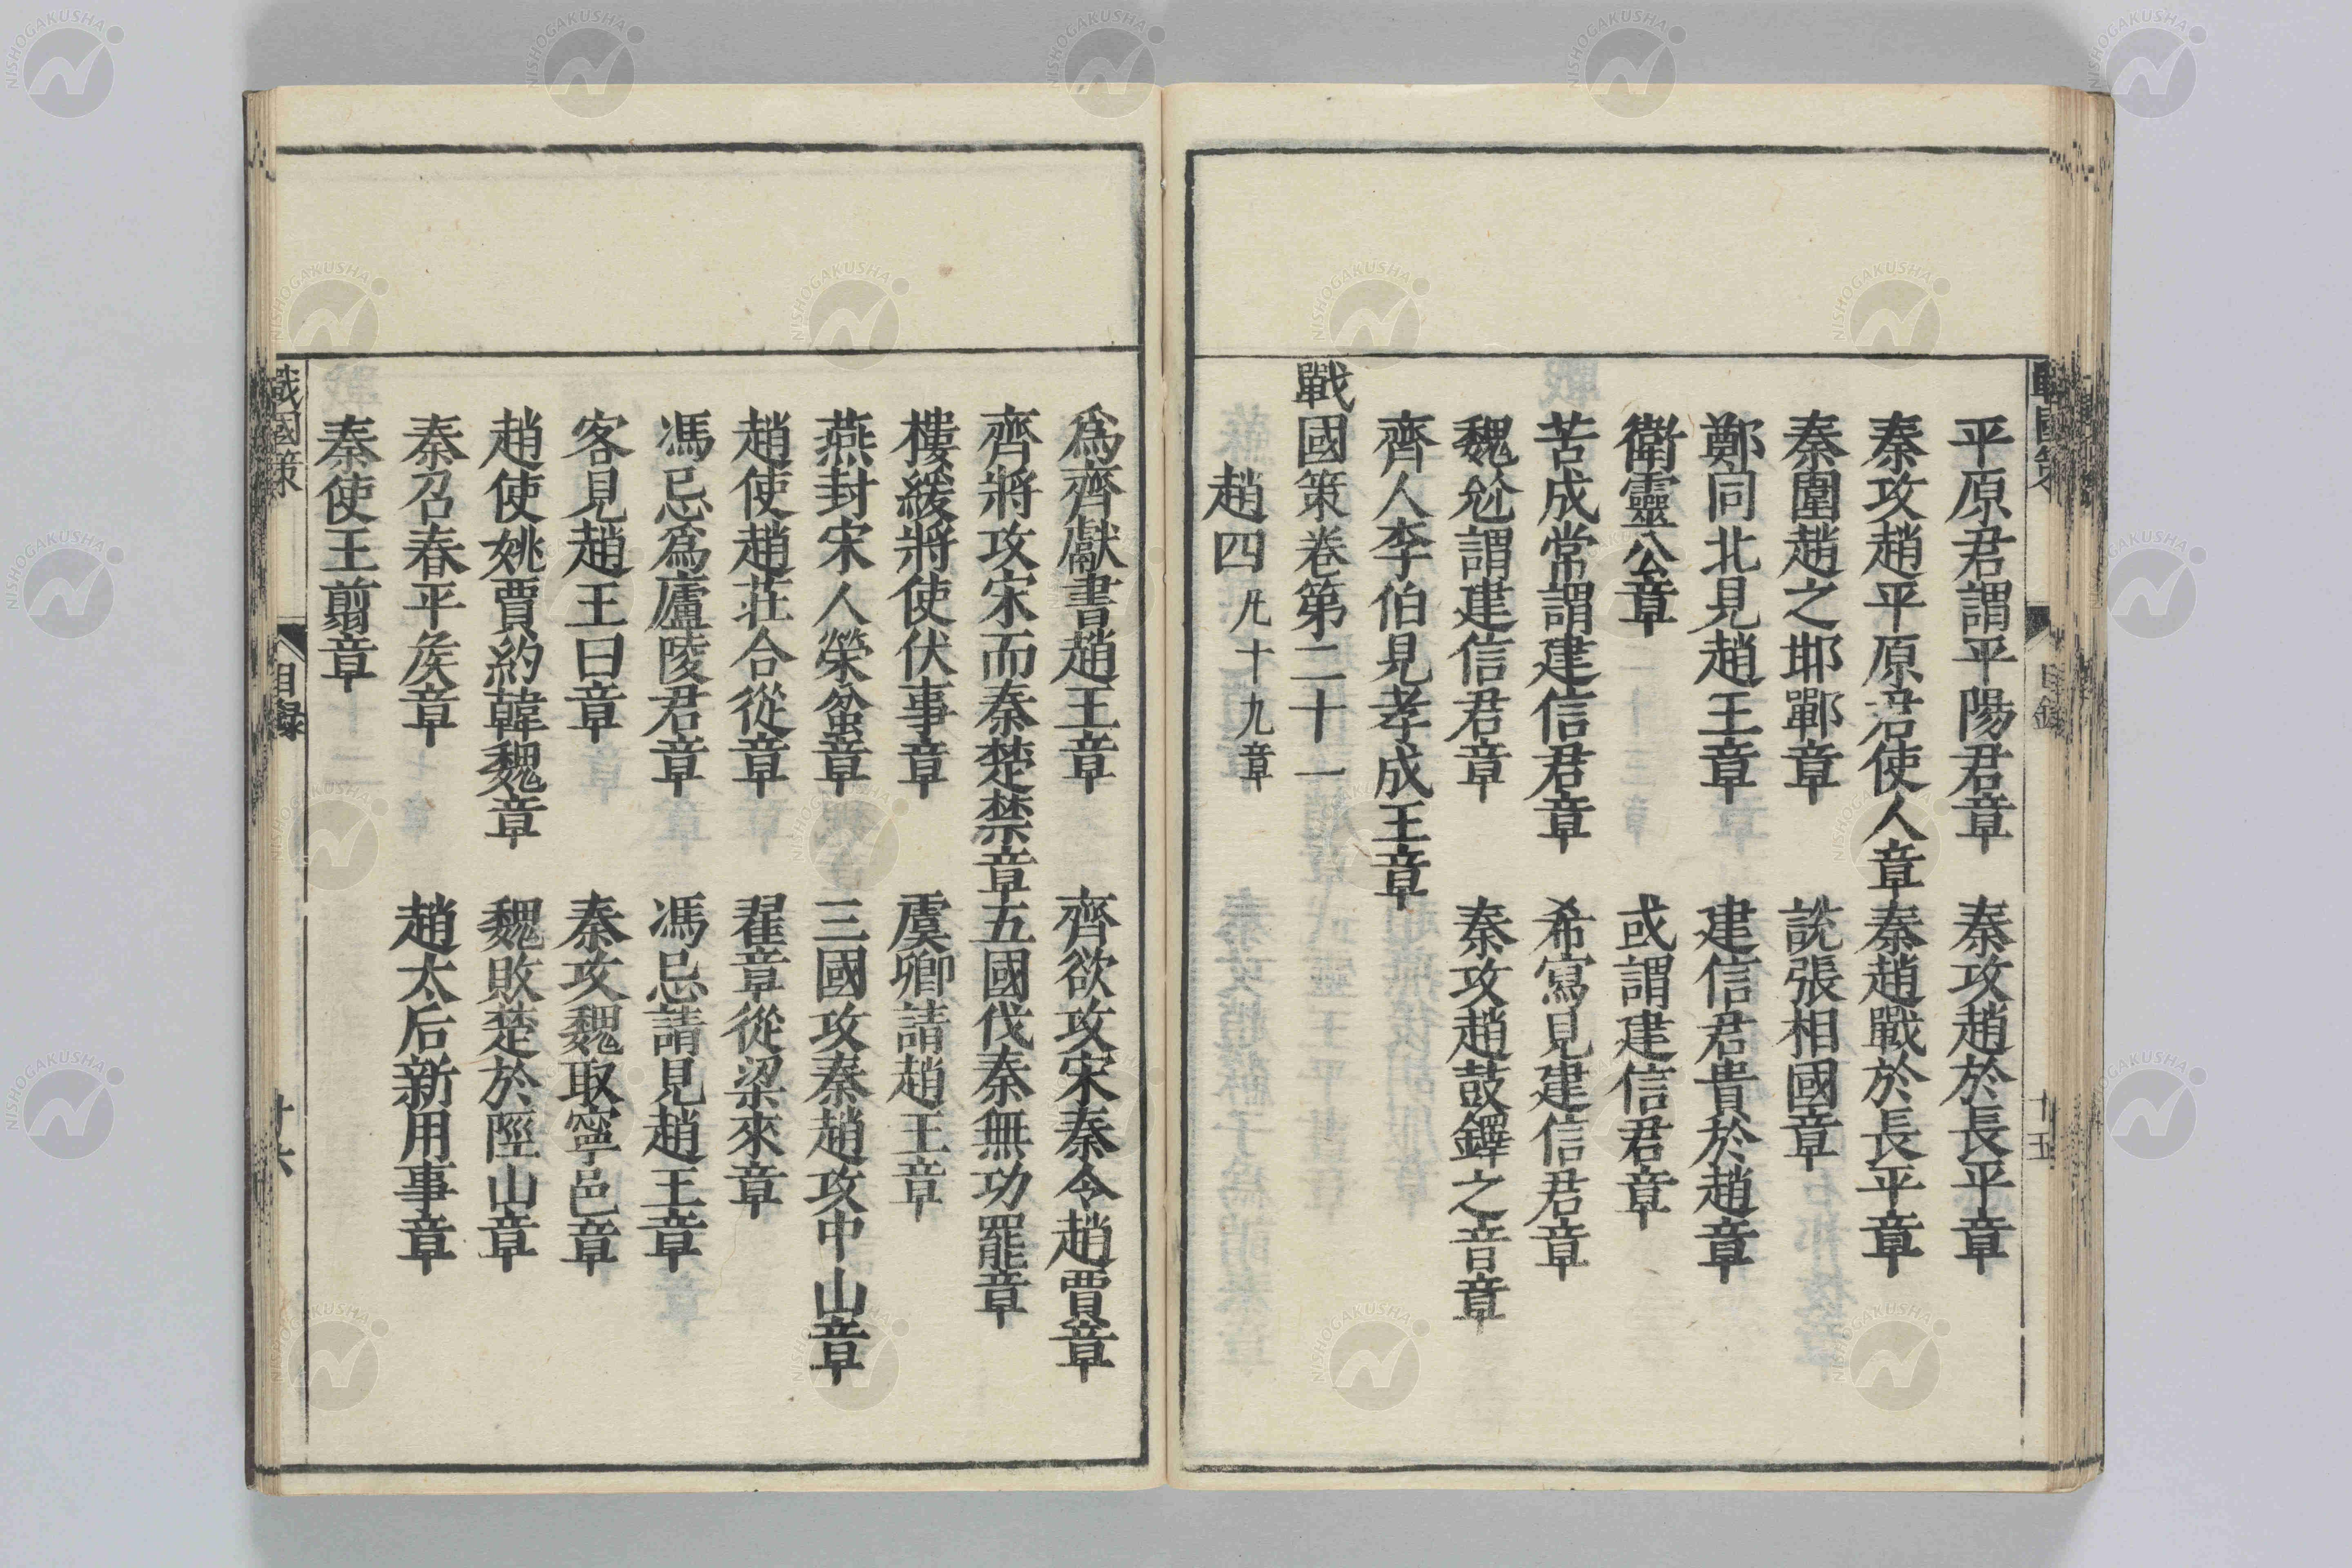 平原君謂平陽君章　秦攻趙於長平章
秦攻趙平原君使人章　秦趙戰於長平章
秦圍趙之邯鄲章　說張相國章
鄭同北見趙王章　建信君貴於趙章
衛靈公章　或謂建信君章
苦成常謂建信君章　希寫見建信君章
魏𠒋謂建信君章　秦攻趙鼓鐸之音章
齊人李伯見孝成王章
戰國策卷第二十一
趙四 凡十九章
爲齊獻書趙王章　齊欲攻宋秦令趙賈章
齊將攻宋而秦楚禁章　五國伐秦無功罷章
樓緩將使伏事章　虞卿請趙王章
燕封宋人榮蚠章　三國攻秦趙攻中山章
趙使趙莊合從章　翟章從梁來章
馮忌爲廬陵君章　馮忌請見趙王章
客見趙王曰章　秦攻魏取寧邑章
趙使姚賈約韓魏章　魏敗楚於陘山章
秦召春平矦章　趙太后新用事章
秦使王翦章
戰國策　目録　十六
NISHOGAKUSHA